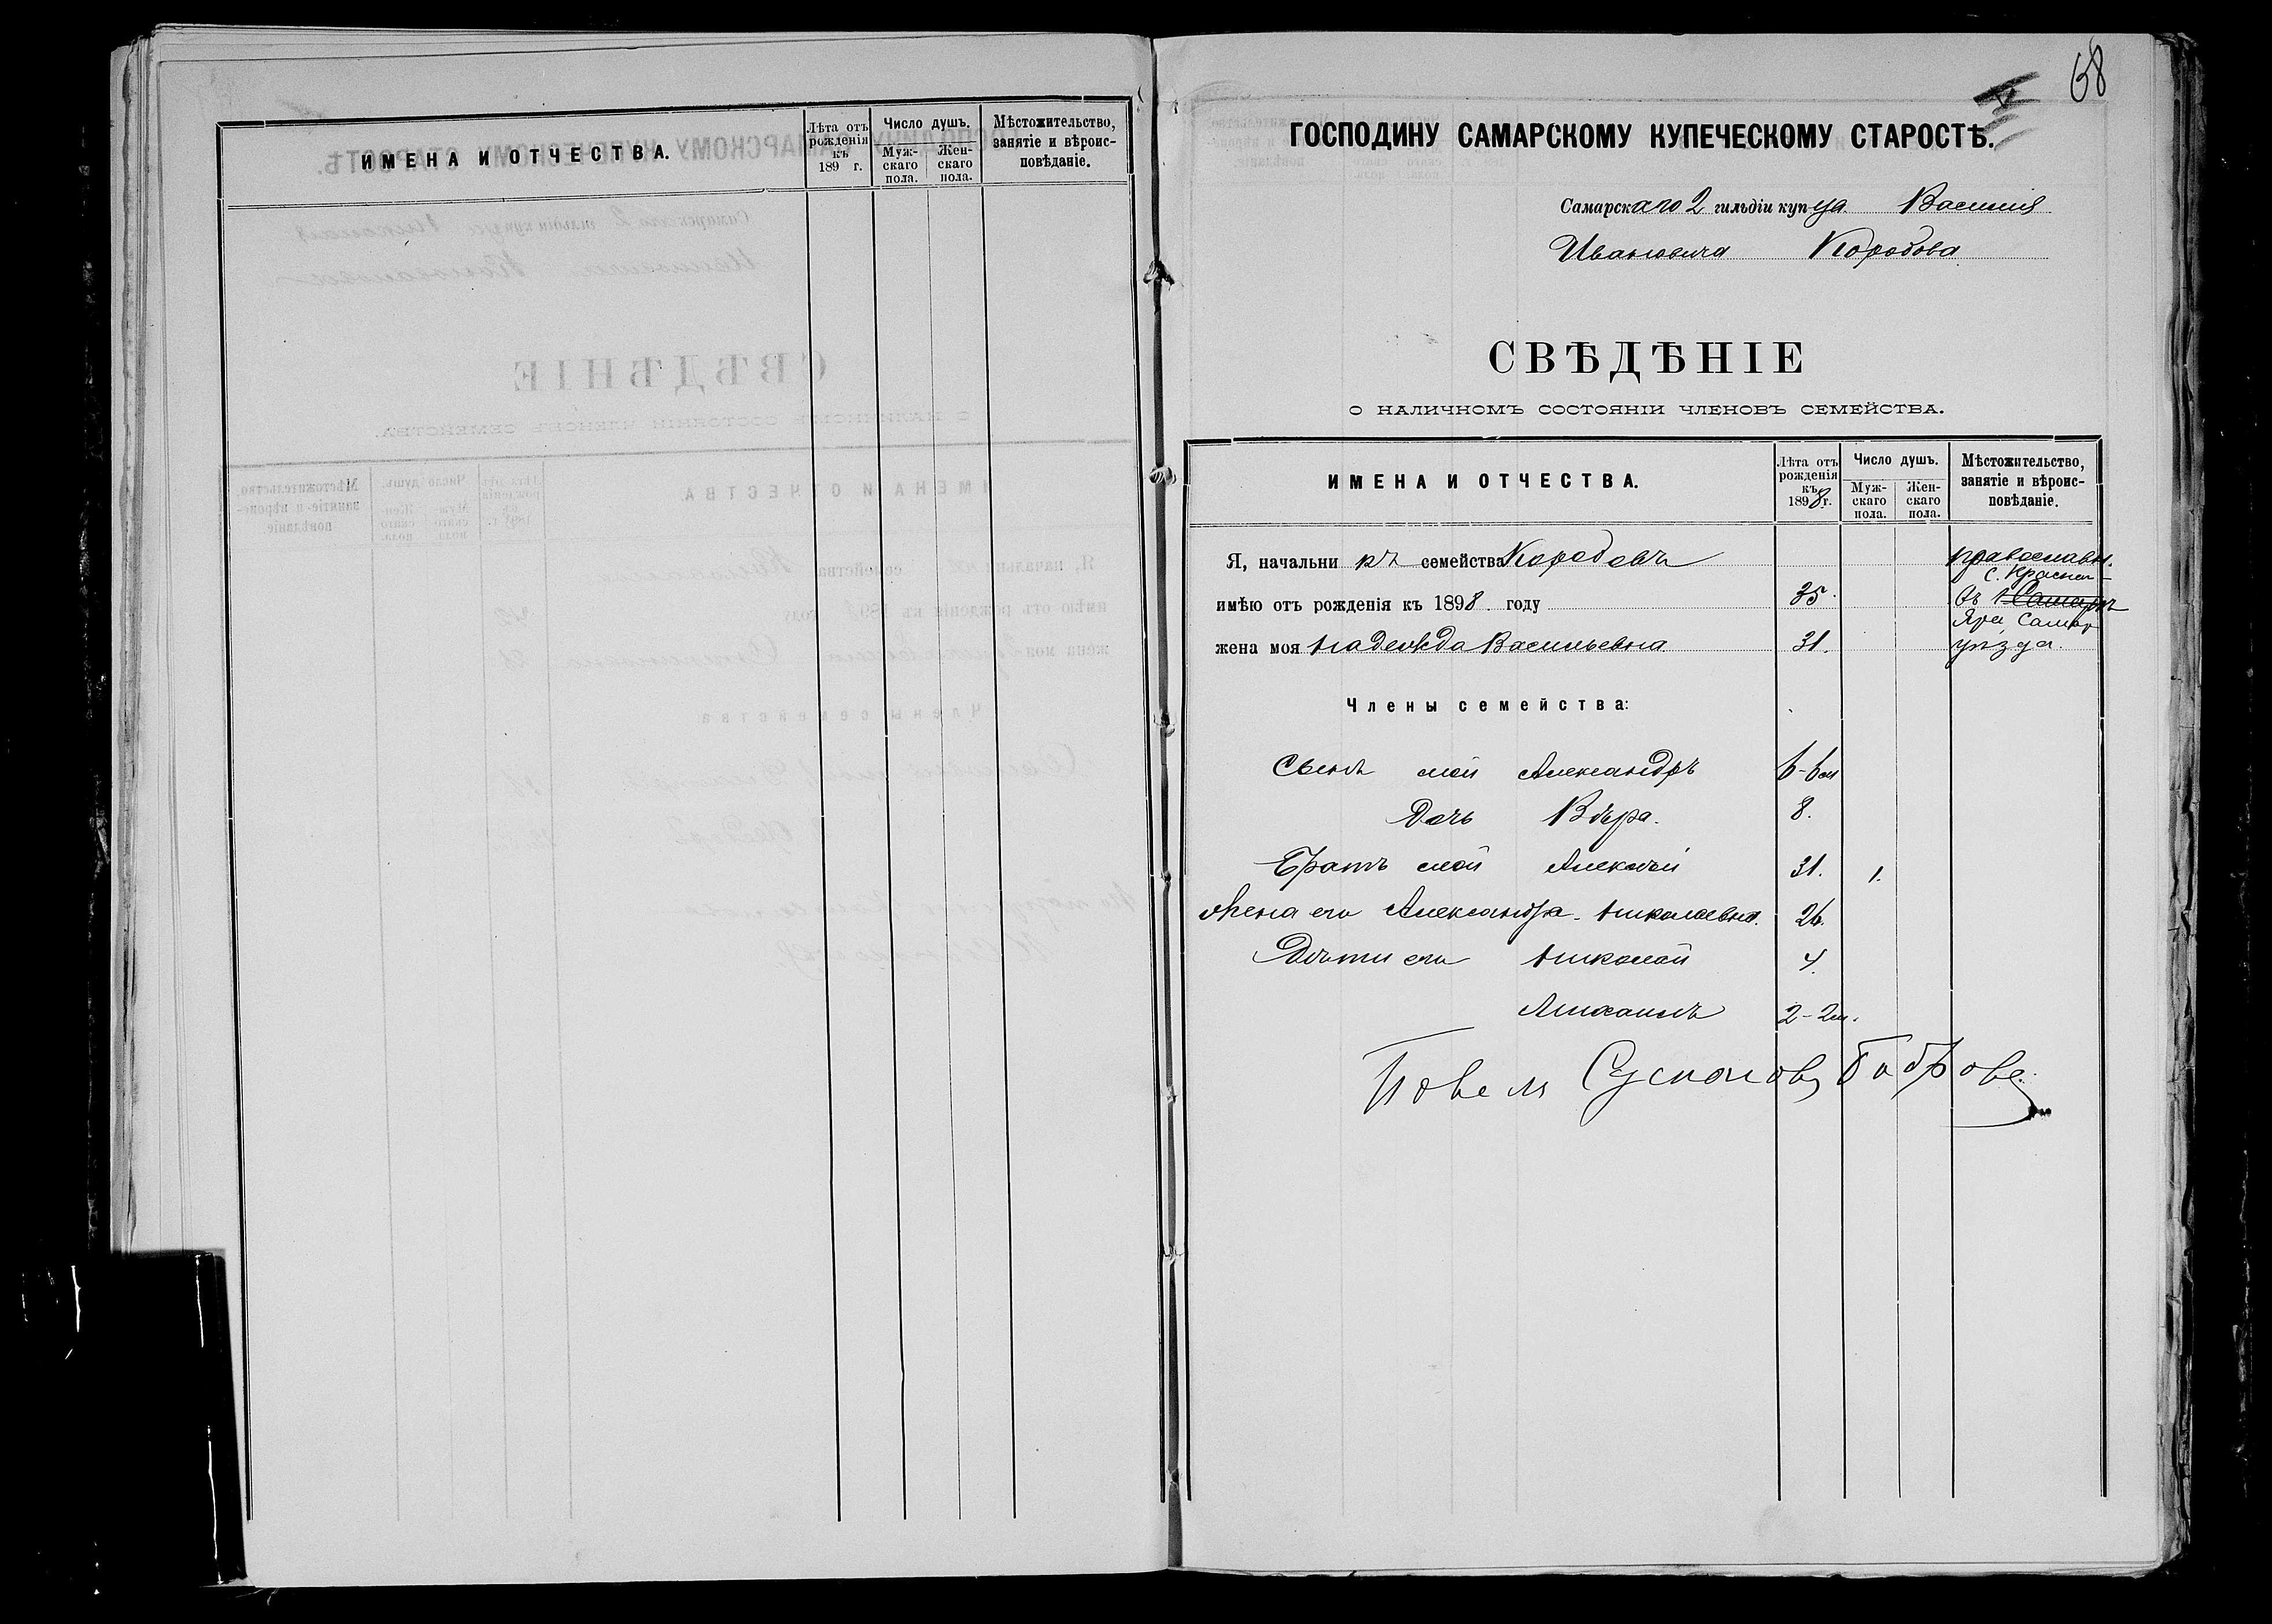 ИМЕНА И ОТЧЕСТВА.
Лѣта отъ рожденія къ 189 г.
Число душъ.
Муж-скаго пола.
Жен-скаго пола.
Мѣстожительство, занятіе и вѣроис-повѣданіе.
68
ГОСПОДИНУ САМАРСКОМУ КУПЕЧЕСКОМУ СТАРОСТѢ.
Самарскаго 2 гильдіи купца Василія
Ивановича Коробова
СВѢДѢНІЕ
О НАЛИЧНОМЪ СОСТОЯНІИ ЧЛЕНОВЪ СЕМЕЙСТВА.
ИМЕНА И ОТЧЕСТВА.
Лѣта отъ рожденія къ 1898 г.
Число душъ.
Муж-скаго пола.
Жен-скаго пола.
Мѣстожительство, занятіе и вѣроис-повѣданіе.
Я, начальникъ семейства Коробовъ православн.
с. Красн
имѣю отъ рожденія къ 1898 году 35. въ Самарѣ
Яра Самар
жена моя Надежда Васильевна 31. уѣзда.
Члены семейства:
Сынъ мой Александръ 6-6 м
Дочь Вѣра. 8.
Братъ мой Алексѣй 31. 1.
Жена его Александра Николаевна. 26.
Дѣти его Николай 4.
Михаилъ 2-2 м.